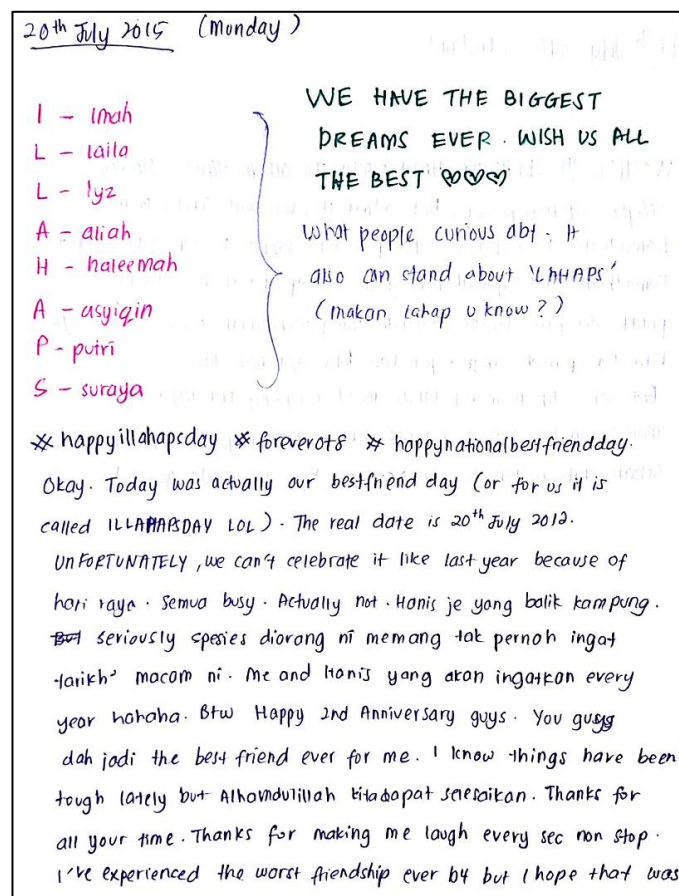 20th July 2015 (Monday)
I - imah
L - laila
L - lyz
A - aliah
H - haleemah
A - asyiqin
P - putri
S - suraya
WE HAVE THE BIGGEST
DREAMS EVER. WISH US ALL
THE BEST ♡♡♡
What people curious abt. It
also can stand about 'LAHAPS'
(makan lahap u know?)
* happyillahapsday * foreverot8 * happynationalbestfriendday.
Okay. Today was actually our bestfriend day (or for us it is
called ILLAHAPSDAY LOL). The real date is 20th July 2012.
UNFORTUNATELY, we can't celebrate it like last year because of
hari raya. Semua busy. Actually not. Hanis je yang balik kampung.
But seriously spesies diorang ni memang tak pernah ingat
tarikh² macam ni. Me and Hanis yang akan ingatkan every
year hahaha. Btw Happy 2nd Anniversary guys. You guys
dah jadi the best friend ever for me. I know things have been
tough lately but Alhamdulillah kita dapat selesaikan. Thanks for
all your time. Thanks for making me laugh every sec non stop.
I've experienced the worst friendship ever b4 but I hope that was